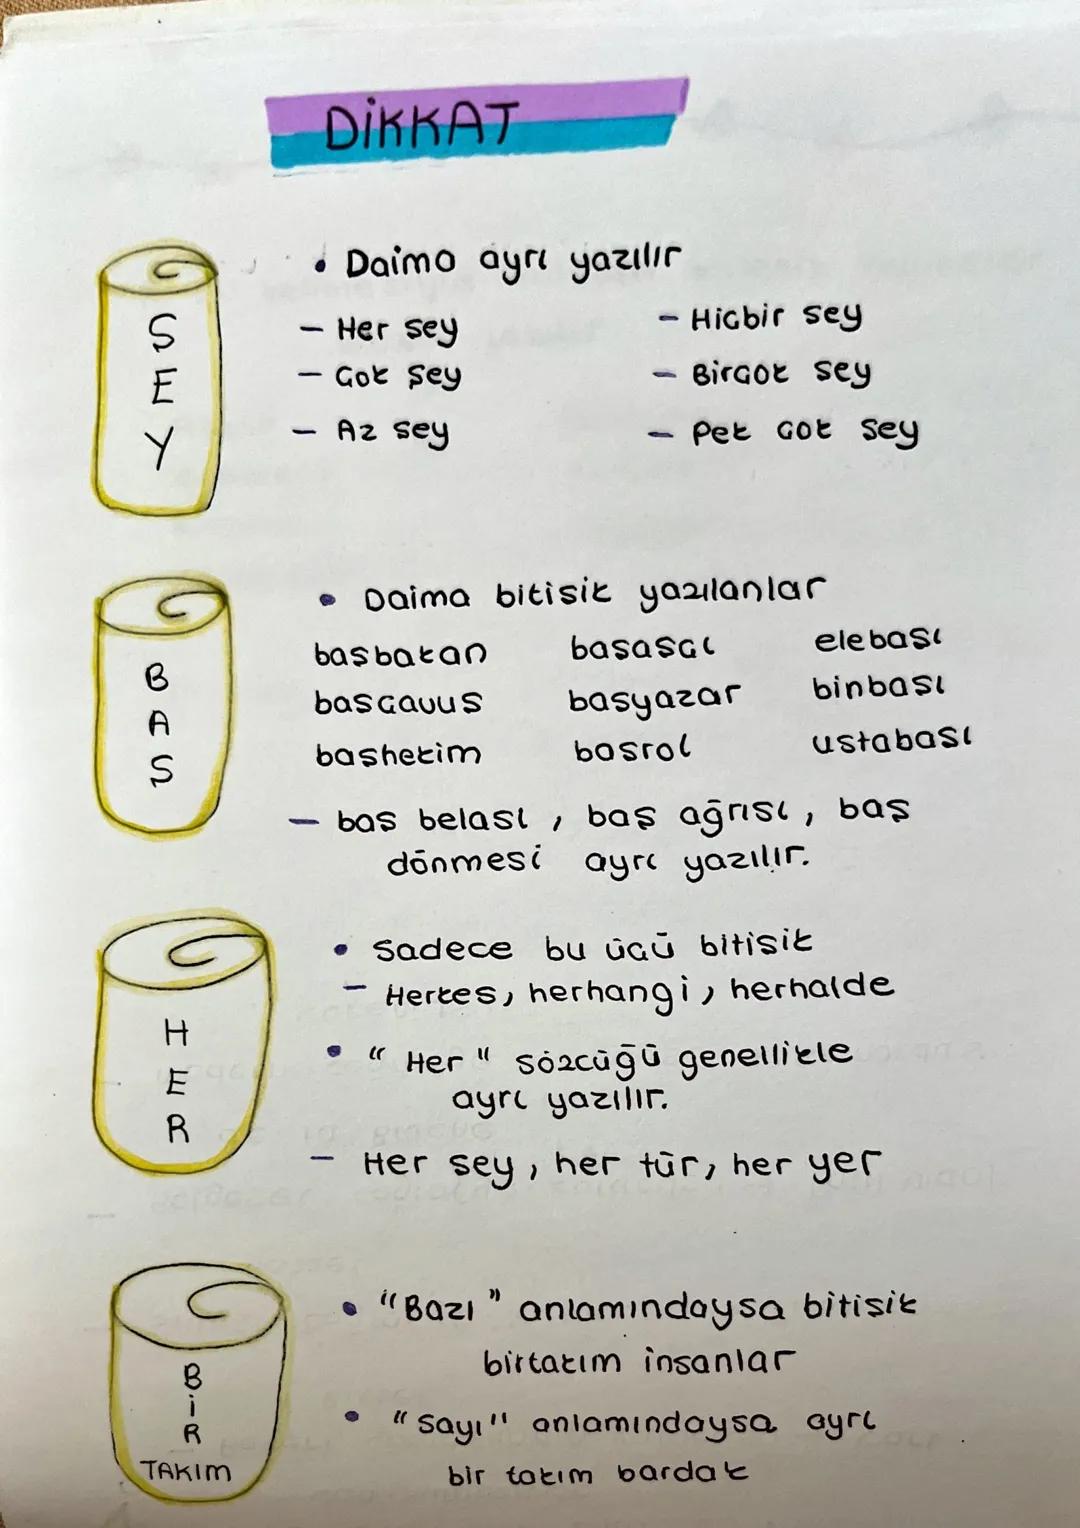 DİKKAT
ŞEY
• Daima ayrı yazılır
– Her şey
– Çok şey
– Az şey
– Hiçbir şey
– Birçok şey
– Pek çok şey
BAŞ
• Daima bitişik yazılanlar
başbakan başaşçı elebaşı
başçavuş başyazar binbaşı
başhekim başrol ustabaşı
– baş belası, baş ağrısı, baş
dönmesi ayrı yazılır.
HER
• Sadece bu üçü bitişik
– Herkes, herhangi, herhalde
• "Her" sözcüğü genellikle
ayrı yazılır.
– Her şey, her tür, her yer
BİR
TAKIM
• "Bazı" anlamındaysa bitişik
birtakım insanlar
• "Sayı" anlamındaysa ayrı
bir takım bardak